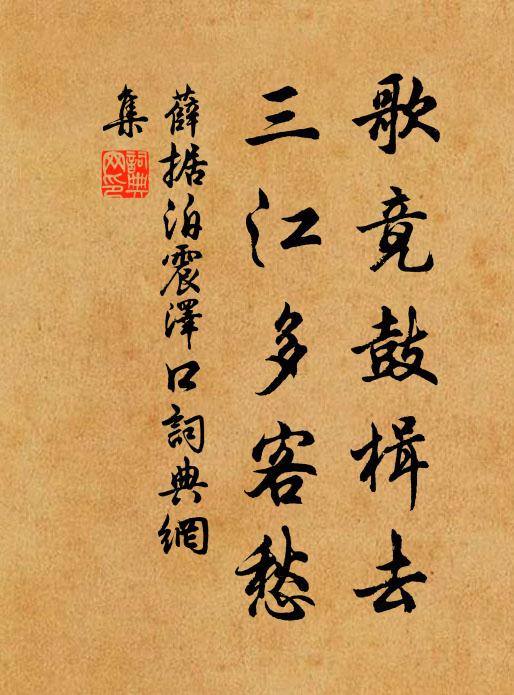 歌竟鼓楫去
三江多客愁
薛据泊震澤口詞典網
集
詞典网印